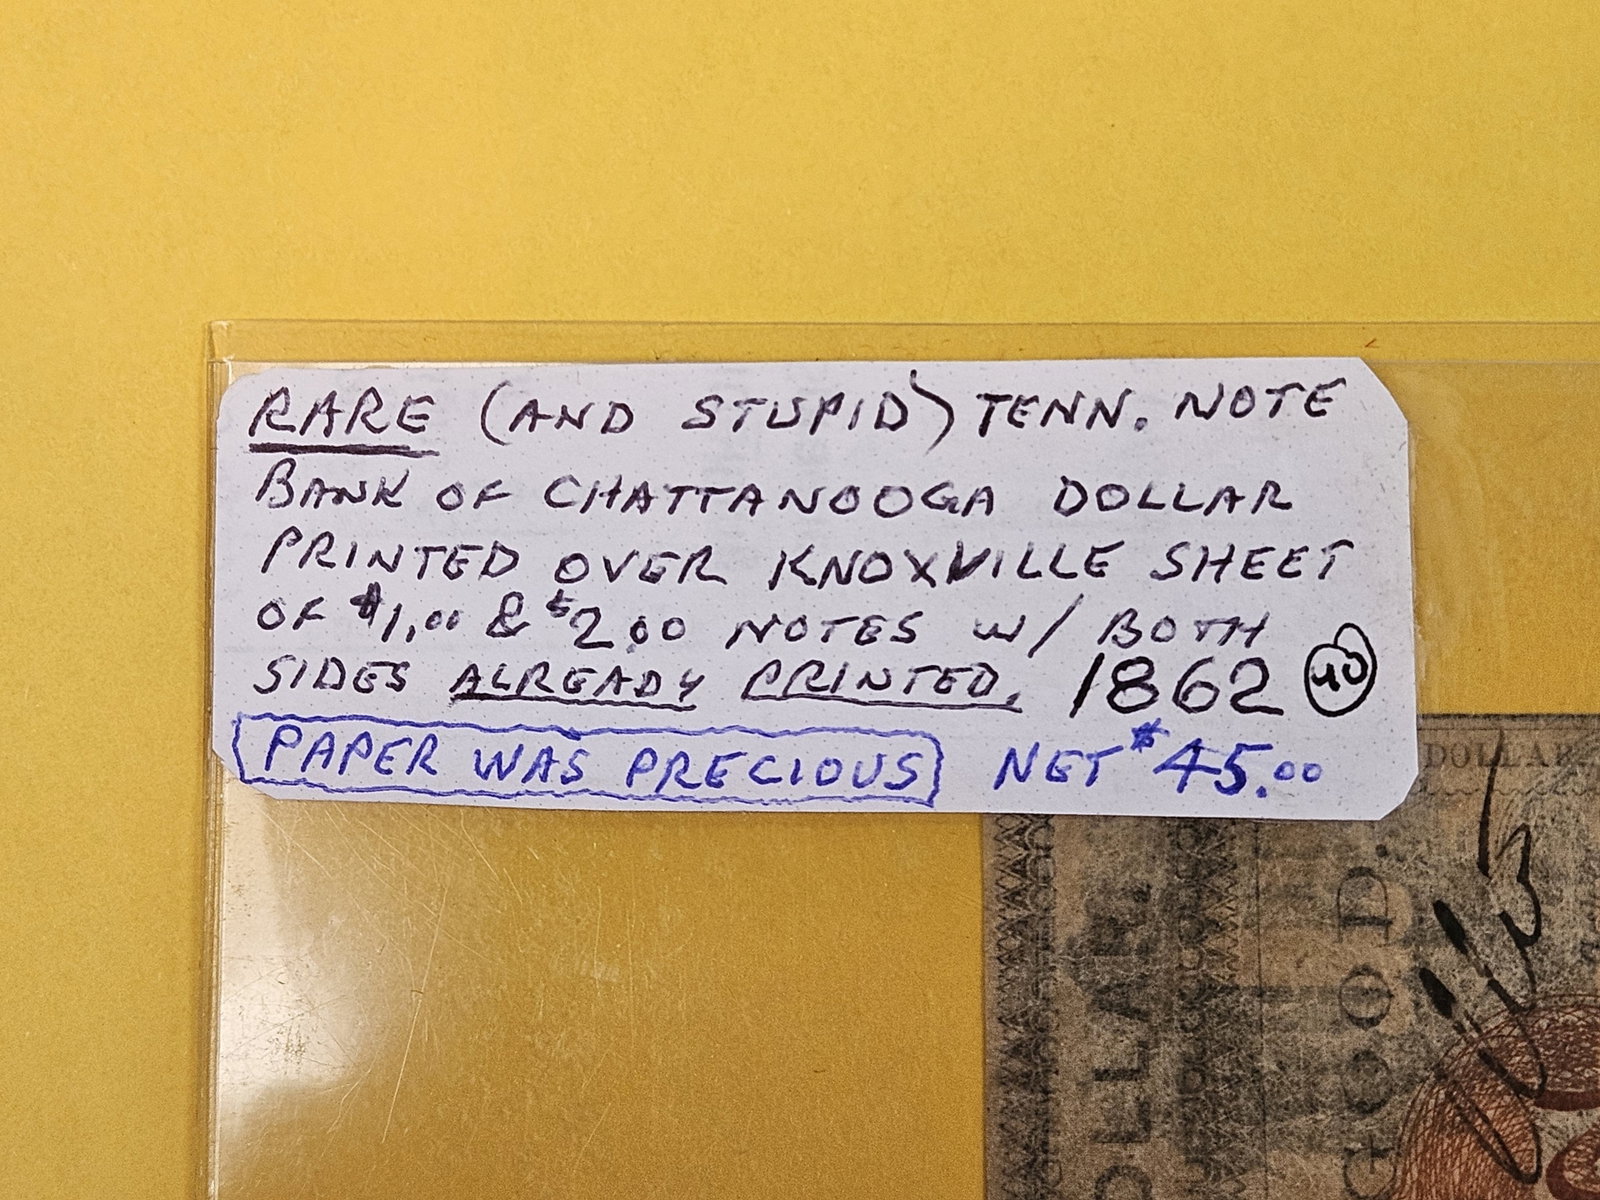 RARE (AND STUPID) TENN. NOTE
BANK OF CHATTANOOGA DOLLAR
PRINTED OVER KNOXVILLE SHEET
OF $1.00 & $2.00 NOTES W/ BOTH
SIDES ALREADY PRINTED. 1862 40
PAPER WAS PRECIOUS NET $45.00
DOLLAR
DOLLAR.
GOOD.